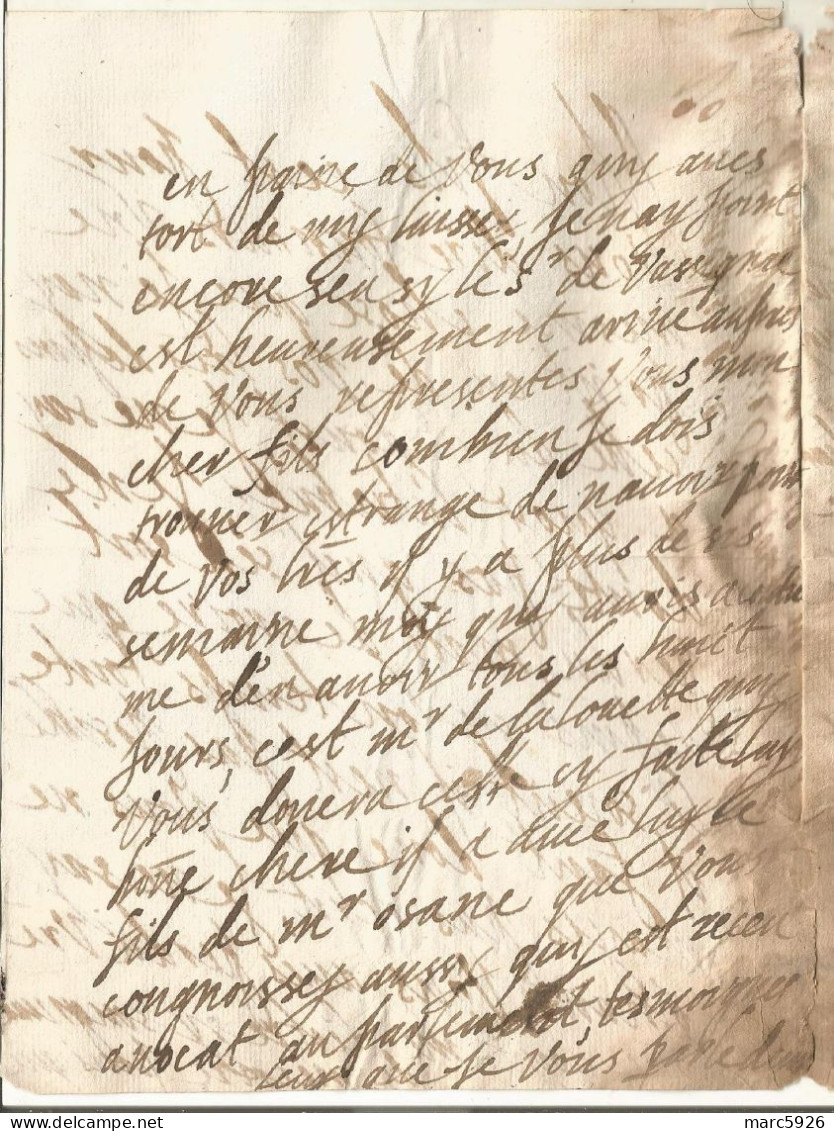 en paine de vous quy aues
tort de my laisser, Je nay point
encore sceu sy le sr de Vassegnac
est heureusement ariué
de vous representes vous mon
cher fils combien Je dois
trouuer estrange de nauoir point
de vos lres il y a plus de
semaine moy quy auois
me d'en auoir tous les huit
Jours, cest mr de la louette quy
Vous donera celle cy faite luy
bone chere il a auec luy le
fils de mr osane que Vous
congnoissez aussy quy est receu
auocat au parlement, tesmoignes
leur que Je Vous
marc5926